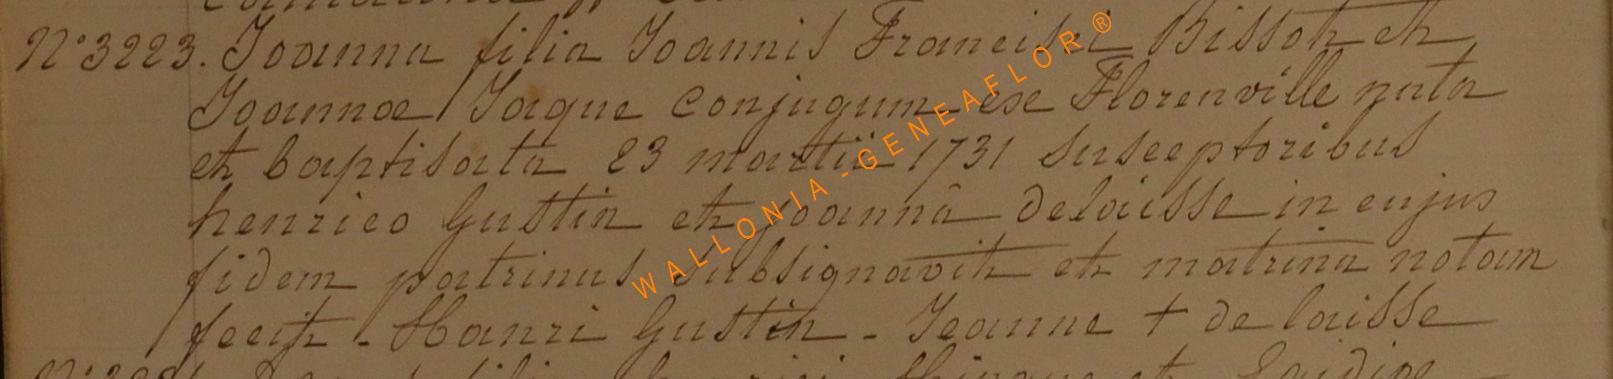 N° 3223. Joanna filia Joannis Francisci Bissot et
Joannae Jaque conjugum ex Florenville nata
et baptisata 23 martii 1731 susceptoribus
henrico Gustin et joannâ delaisse in cujus
fidem patrinus subsignavit et matrina notam
fecit - Hanri Gustin - Jeanne + de laisse
WALLONIA-GENEAFLOR®